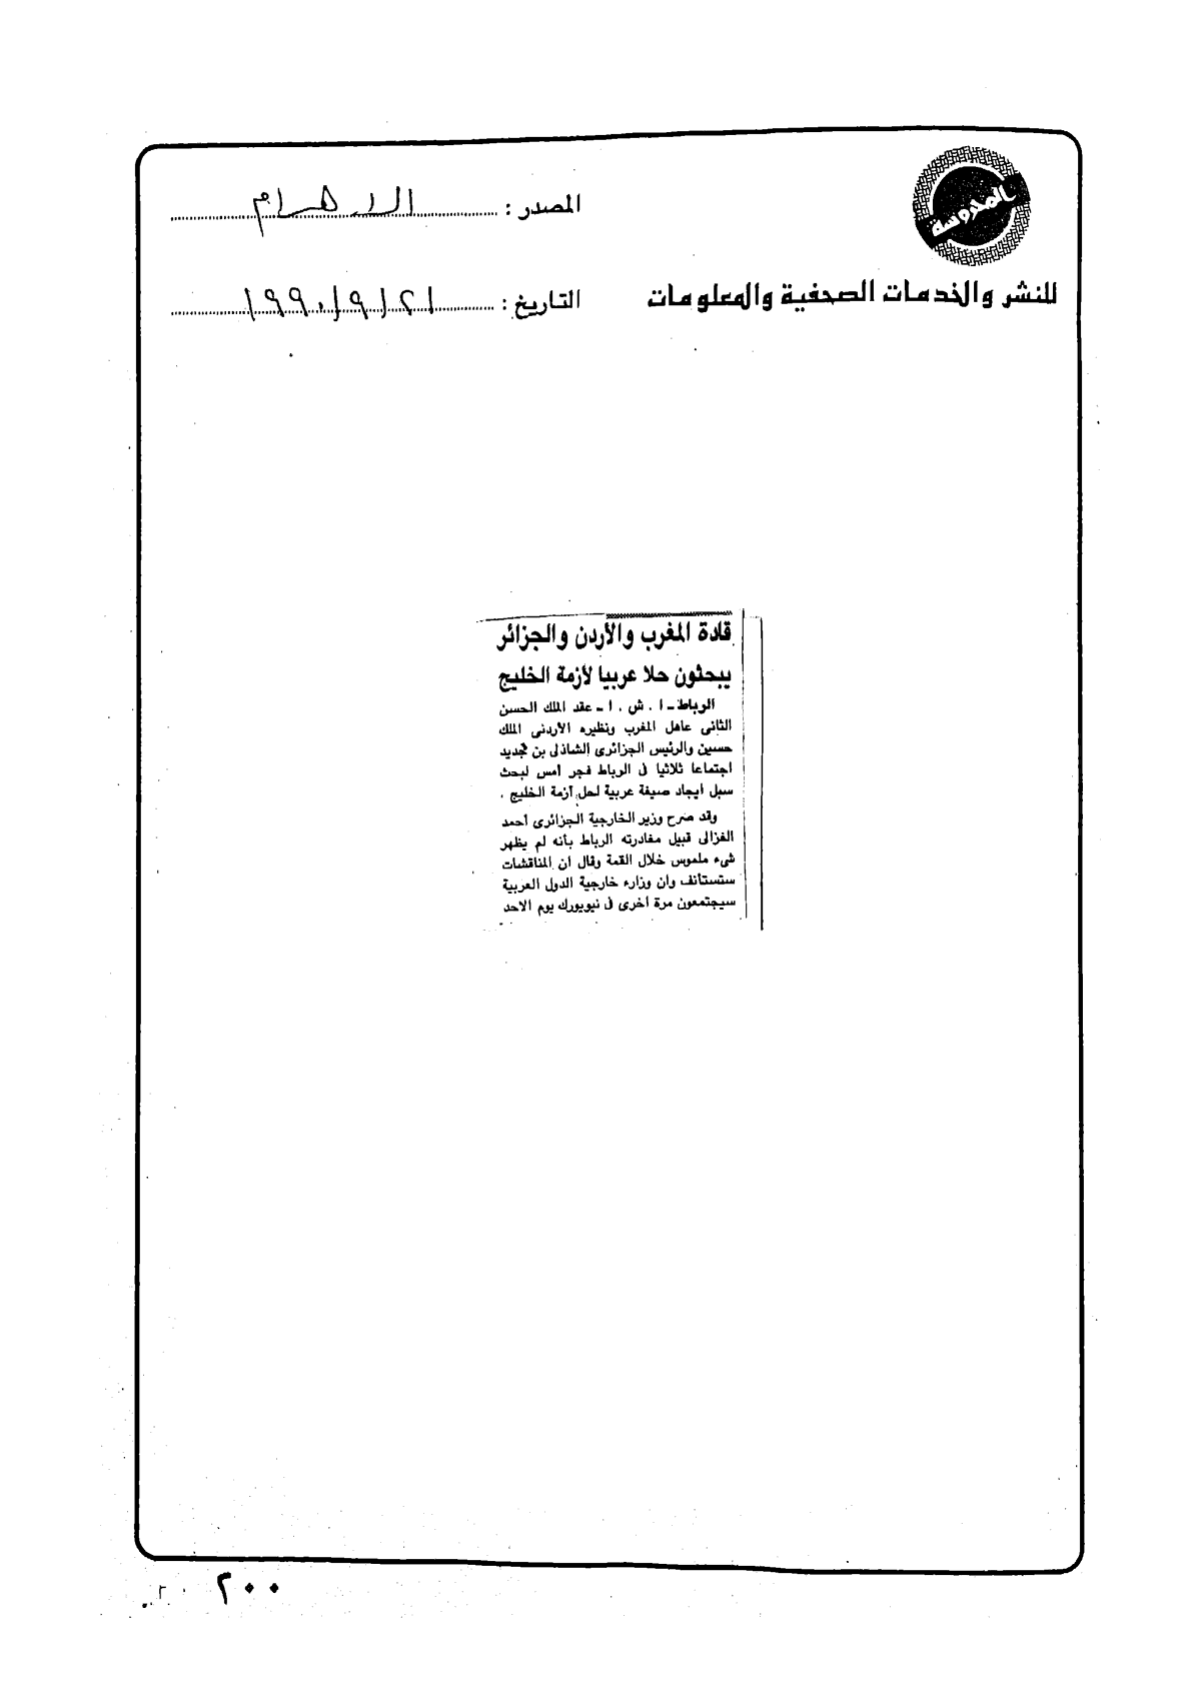 المدروسة
للنشر والخدمات الصحفية والمعلومات
المصدر : الاهرام
التاريخ : ١٩٩٠/٩/٢١
قادة المغرب والأردن والجزائر
يبحثون حلا عربيا لأزمة الخليج
الرباط ـ ا . ش . ا ـ عقد الملك الحسن
الثانى عاهل المغرب ونظيره الأردنى الملك
حسين والرئيس الجزائرى الشاذلى بن جديد
اجتماعا ثلاثيا فى الرباط فجر أمس لبحث
سبل ايجاد صيغة عربية لحل أزمة الخليج .
وقد صرح وزير الخارجية الجزائرى أحمد
الغزالى قبيل مغادرته الرباط بأنه لم يظهر
شىء ملموس خلال القمة وقال ان المناقشات
ستستأنف وان وزراء خارجية الدول العربية
سيجتمعون مرة أخرى فى نيويورك يوم الاحد
٢٠٠